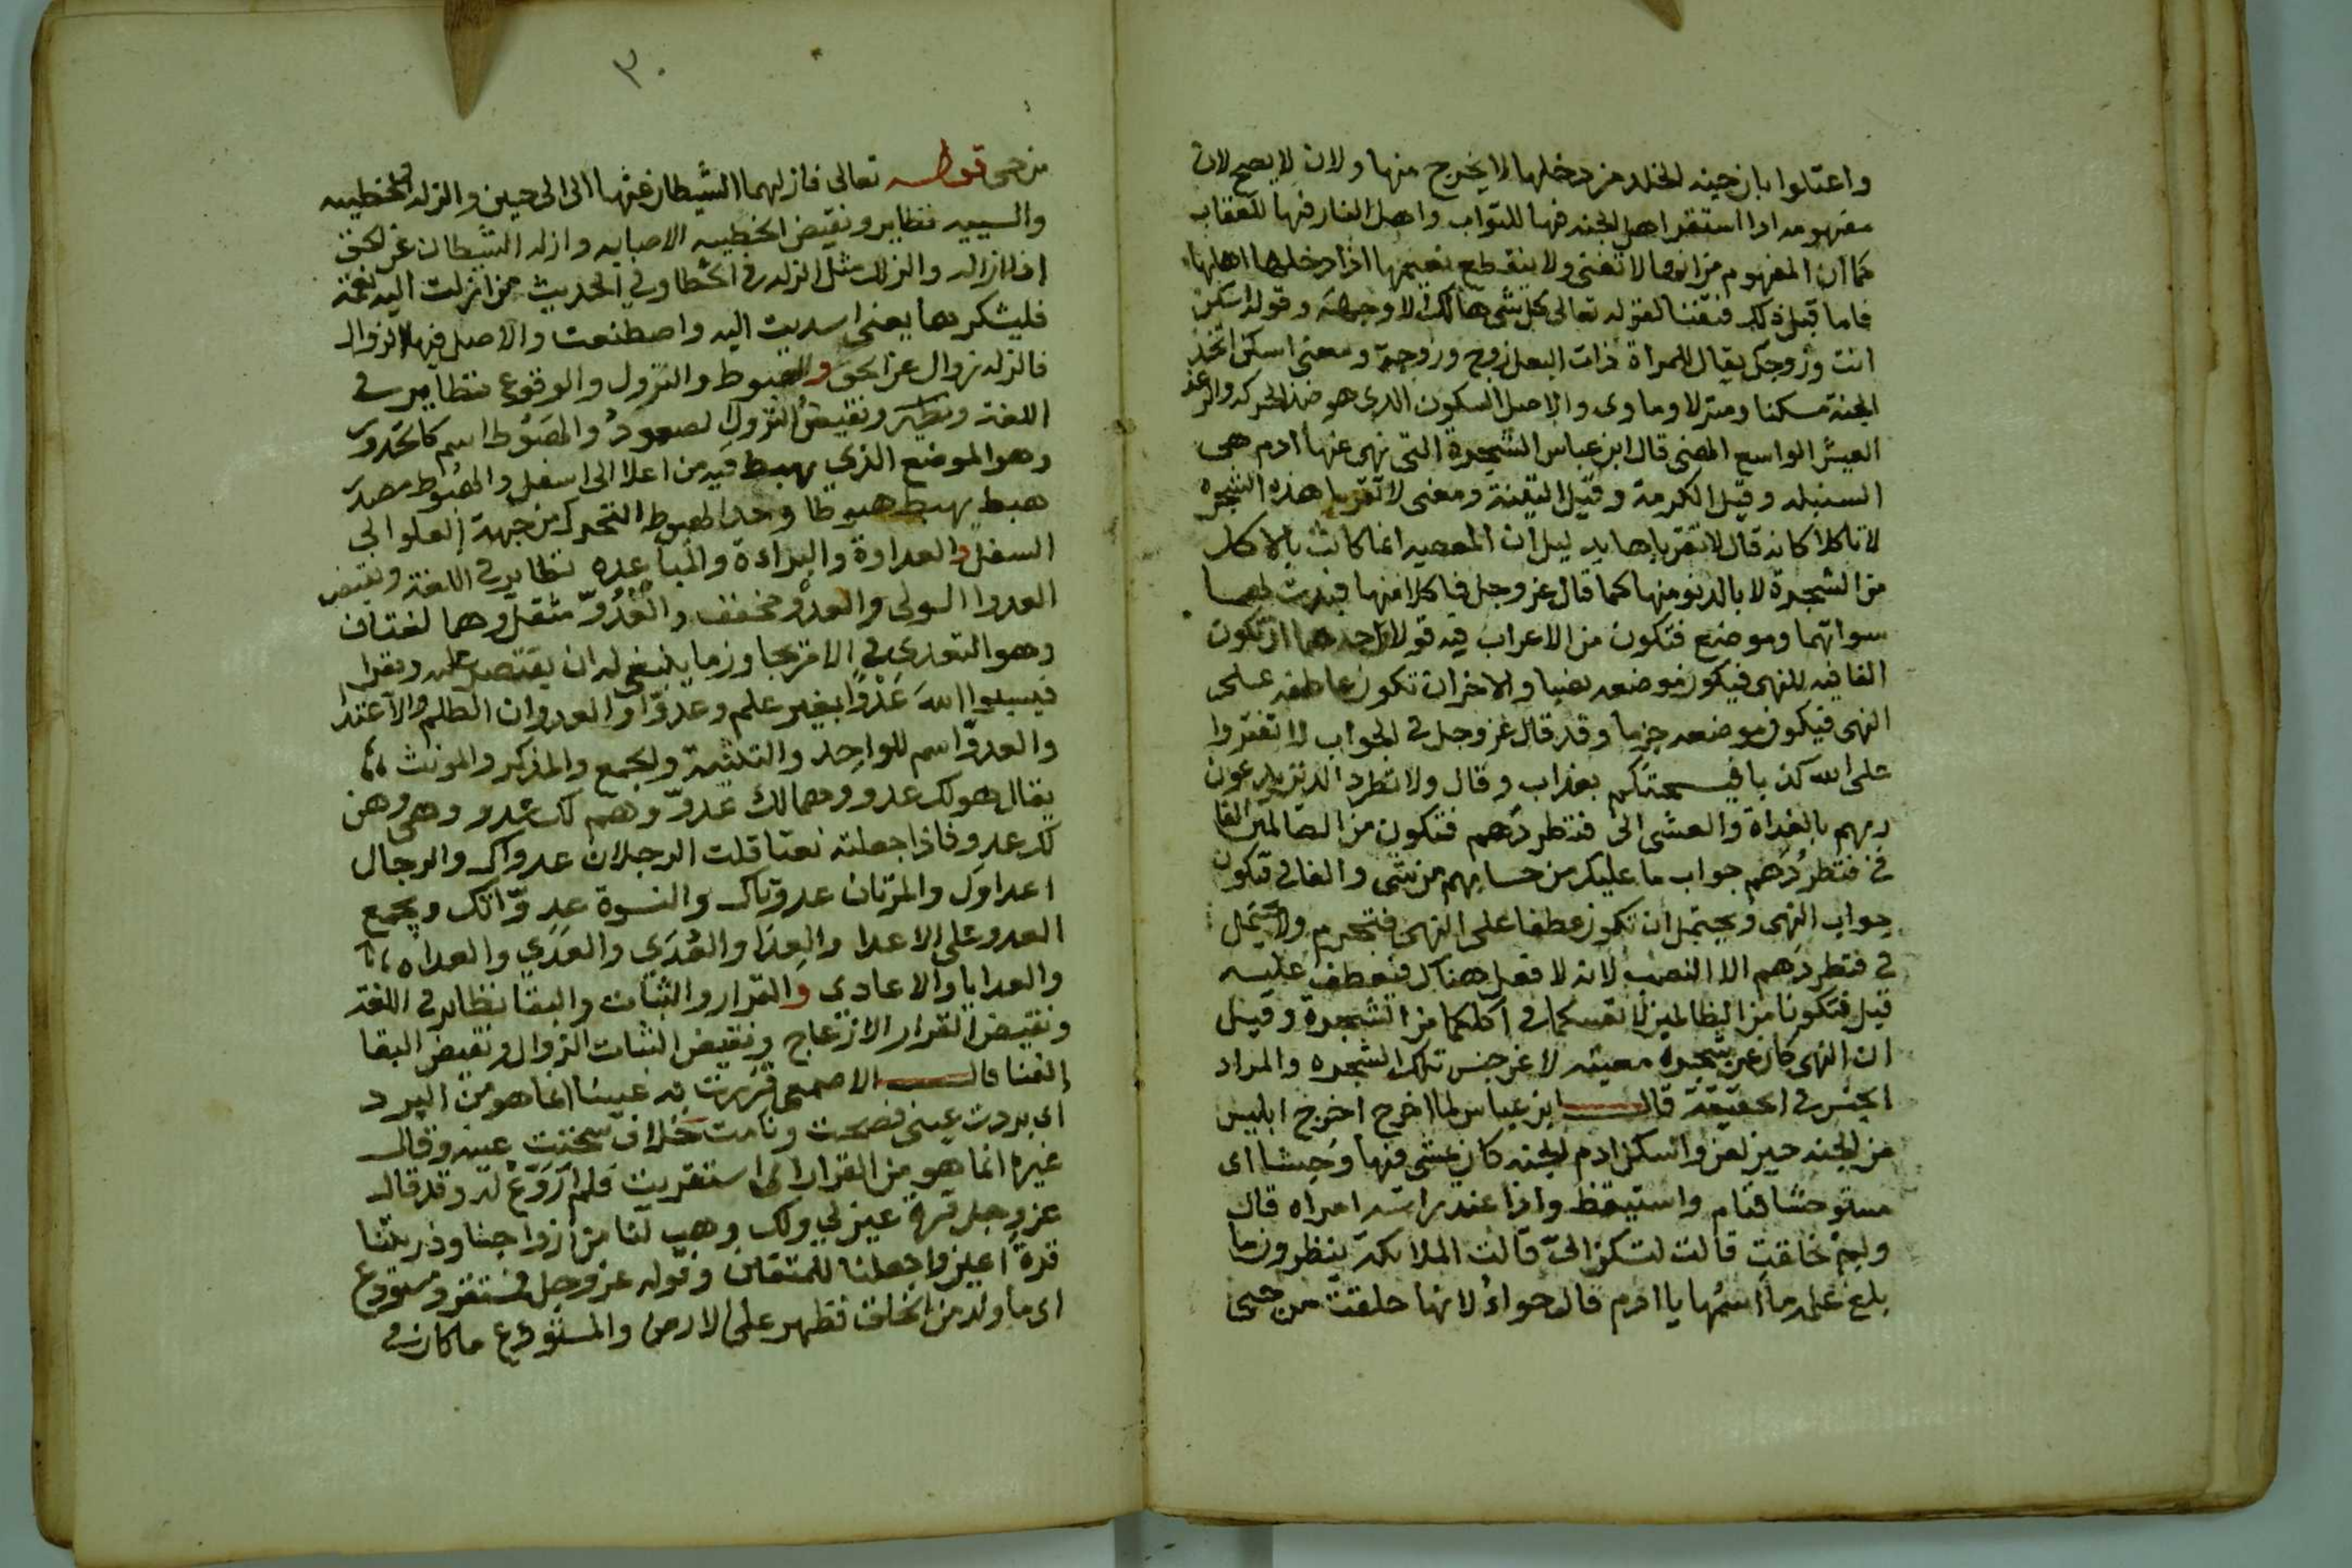 واعتلوا بان جنه الخلد من دخلها لا يخرج منها ولان لا يصح لان
مفهومه اذا استقر اهل الجنه فيها للثواب واهل النار فيها للعقاب
كما ان المفهوم من انها لا تفنى ولا ينقطع نعيمها اذا دخلها اهلها
فاما قبل ذلك فتفنا لقوله تعالى كل شي هالك الا وجهه وقوله اسكن
انت وزوجك يقال للمراة ذات البعل زوج وزوجة ومعنى اسكن اتخذ
الجنة مسكنا ومنزلا وماوى والاصل السكون الذي هو ضد الحركه والرغد
العيش الواسع الهني قال ابن عباس الشجرة التي نهى عنها ادم هي
السنبله وقيل الكرمة وقيل التينة ومعنى لا تقربا هذه الشجره
لا تاكلا كانه قال لا تقرباها بدليل ان المعصيه انما كانت بالاكل
من الشجرة لا بالدنو منها كما قال عز وجل فاكلا منها فبدت لهما
سواتهما وموضع فتكون من الاعراب فيه قولان احدهما ان تكون
الفا فيه للنهي فيكون موضعه نصبا والاخر ان تكون عاطفه على
النهي فيكون موضعه جزما وقد قال عز وجل في الجواب لا تفتروا
على الله كذبا فيسحتكم بعذاب وقال ولا تطرد الذين يدعون
ربهم بالغداة والعشي الى فتطردهم فتكون من الظالمين الفا
في فتطردهم جواب ما عليك من حسابهم من شي والفا في فتكون
جواب النهي ويحتمل ان تكون عطفا على النهي فتجزم ولا يحتمل
في فتطردهم الا النصب لانه لا فعل هناك فيعطف عليه
قيل فتكونا من الظالمين لانفسكما في اكلكما من الشجرة وقيل
ان النهي كان عن شجره معينه لا عن جنس تلك الشجره والمراد
الجنس في الحقيقة قال ابن عباس لما اخرج اخرج ابليس
من الجنه حين لعن واسكن ادم الجنه كان يمشي فيها وحشا اي
مستوحشا فنام واستيقظ واذا عند راسه امراه قال
ولم خلقت قالت لتسكن الي قالت الملائكة ينظرون ما
بلغ علمه ما اسمها يا ادم قال حواء لانها خلقت من حي
٣٠
من حي قوله تعالى فازلهما الشيطان عنها الى الى حين والزله والخطيه
والسييه نظاير ونقيض الخطيه الاصابه وازله الشيطان عن الحق
اذا ازاله والزلل مثل الزله في الخطا وفي الحديث من ازلت اليه نعمة
فليشكرها يعني اسديت اليه واصطنعت والاصل فيها الزوال
فالزله زوال عن الحق والهبوط والنزول والوقوع نظاير في
اللغة ونقيض النزول الصعود والهبوط اسم كالحدور
وهو الموضع الذي يهبط فيه من اعلا الى اسفل والهبوط مصدر
هبط يهبط هبوطا وحد الهبوط التحرك من جهة العلو الى
السفل والعداوة والبراءة والمباعده نظاير في اللغة ونقيض
العدو الولي والعدو مخفف والعدو مثقل وهما لغتان
وهو التعدي في الامر تجاوز ما ينبغي له ان يقتصر عليه ويقرا
فيسبوا الله عدوا بغير علم وعدوا والعدوان الظلم والاعتدا
والعدو اسم للواحد والتثنية والجمع والمذكر والمونث
يقال هو لك عدو وهما لك عدو وهم لك عدو وهي وهن
لك عدو فاذا جعلته نعتا قلت الرجلان عدواك والرجال
اعداوك والمرتان عدوتاك والنسوة عدواتك ويجمع
العدو على الاعدا والعدا والعدى والعدي والعداه
والعدايا والاعادي والقرار والثبات والبقا نظاير في اللغة
ونقيض القرار الازعاج ونقيض الثبات الزوال ونقيض البقا
الفنا قال الاصمعي قررت به عينا انما هو من البرد
اي بردت عيني فصحت ونامت خلاف سخنت عينه وقال
غيره انما هو من القرار اي استقريت فلم اروع له وقد قال
عز وجل قرة عين لي ولك وهب لنا من ازواجنا وذريتنا
قرة اعين واجعلنا للمتقين وقوله عز وجل فمستقر ومستودع
اي ما ولد من الخلق فظهر على الارض والمستودع ما كان في